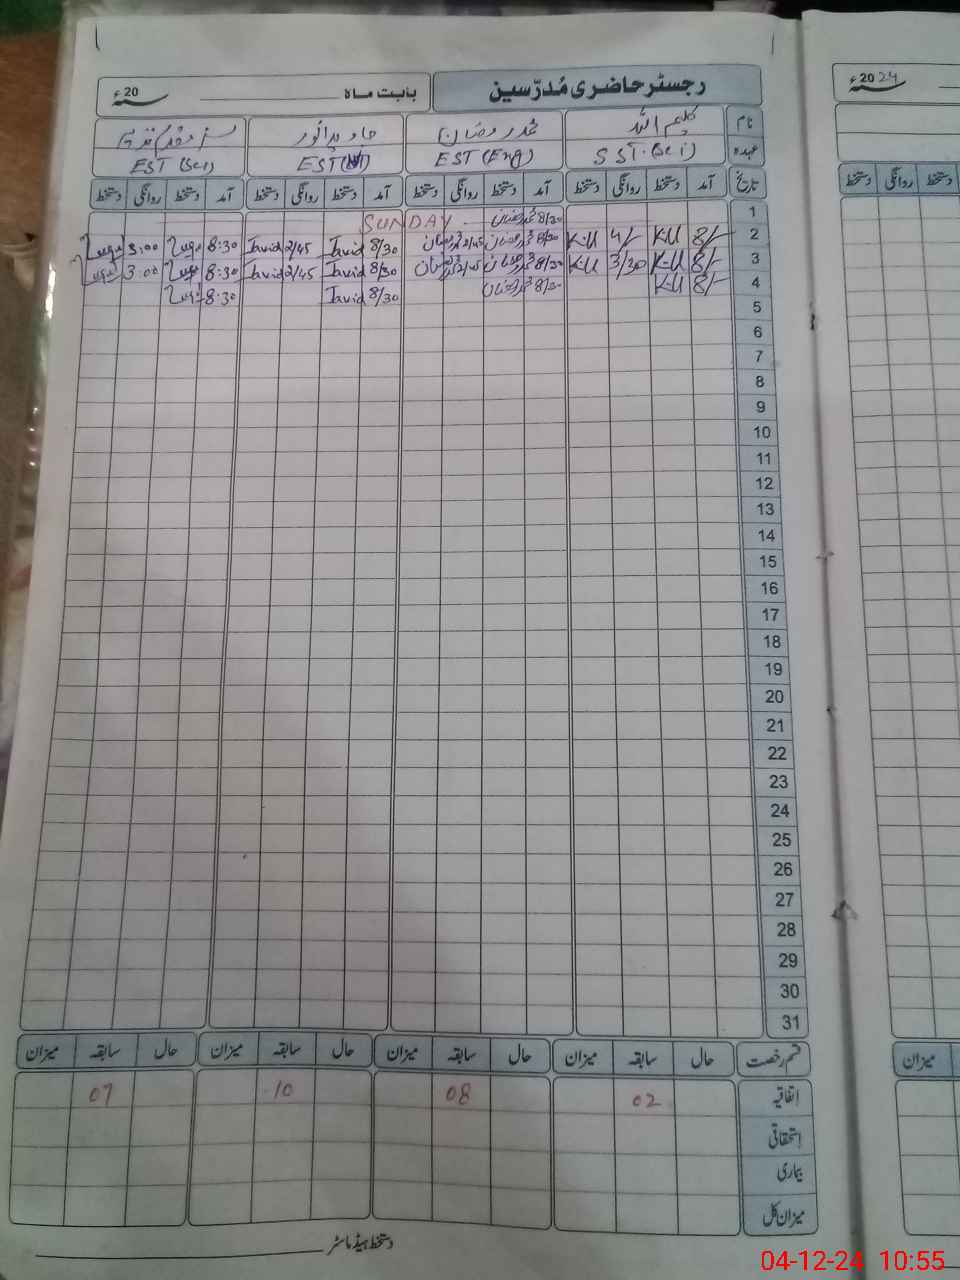 رجسٹر حاضری مُدرّسین
بابت ماہ ـــــــ سنہ 20ء
سنہ 2024ء
نام کلیم اللہ محمد رمضان جاوید انور
عہدہ SST.(Sci) EST (Eng) EST EST (Sci)
تاریخ آمد دستخط روانگی دستخط آمد دستخط روانگی دستخط آمد دستخط روانگی دستخط آمد دستخط روانگی دستخط
دستخط روانگی دستخط
1 SUNDAY محمد رمضان 8/30
2 8/- K.U 4/- K.U 8/30 محمد رمضان 2/45 محمد رمضان 8/30 Javid 2/45 Javid 8:30 3:00
3 8/- K.U 3/30 K.U 8/30 محمد رمضان 2/45 محمد رمضان 8/30 Javid 2/45 Javid 8:30 3:00
4 8/- K.U 8/30 محمد رمضان 8/30 Javid 8:30
5
6
7
8
9
10
11
12
13
14
15
16
17
18
19
20
21
22
23
24
25
26
27
28
29
30
31
قسم رخصت حال سابقہ میزان حال سابقہ میزان حال سابقہ میزان حال سابقہ میزان
میزان
اتفاقیہ 02 08 10 07
استحقاقی
بیماری
میزان کل
دستخط ہیڈ ماسٹر
04-12-24 10:55